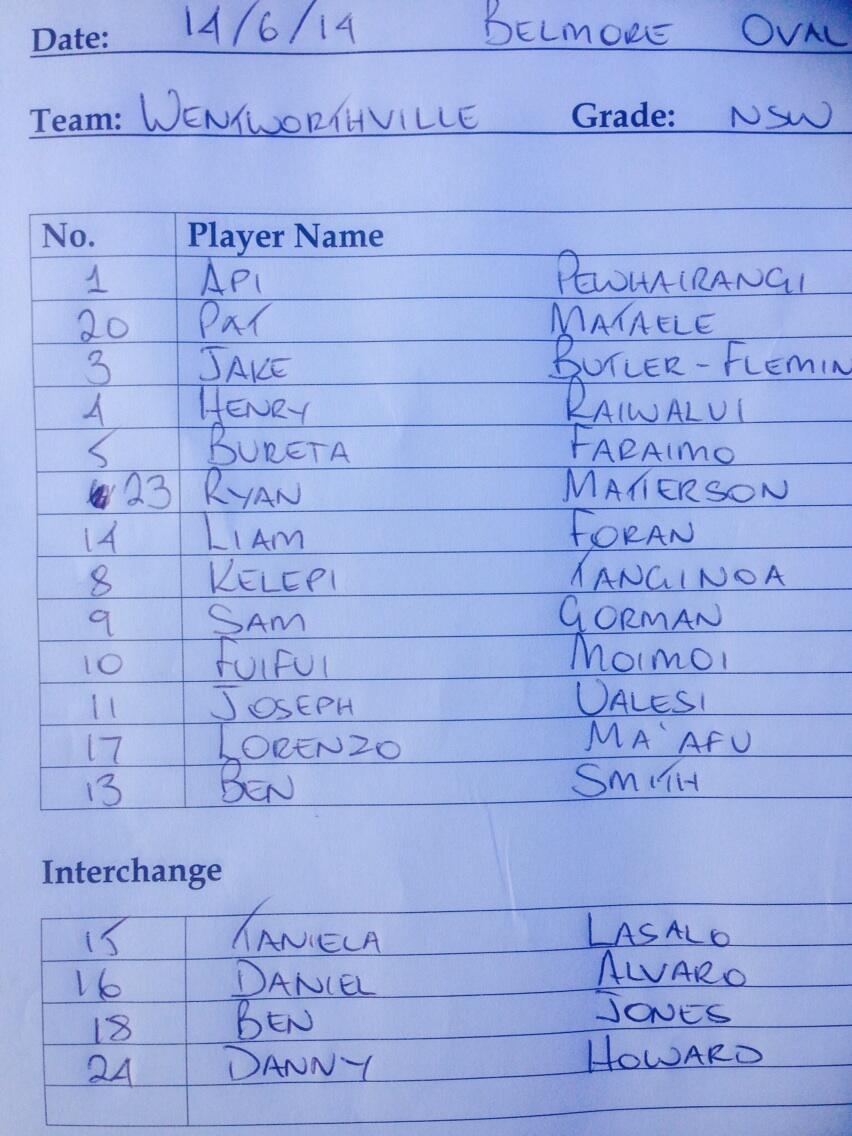 Date: 14/6/14 BELMORE OVAL
Team: WENTWORTHVILLE Grade: NSW
No. Player Name
1 API PEWHAIRANGI
20 PAT MATAELE
3 JAKE BUTLER-FLEMIN
4 HENRY RAIWALUI
5 BURETA FARAIMO
23 RYAN MATTERSON
14 LIAM FORAN
8 KELEPI TANGINOA
9 SAM GORMAN
10 FUIFUI MOIMOI
11 JOSEPH UALESI
17 LORENZO MA'AFU
13 BEN SMITH
Interchange
15 TANIELA LASALO
16 DANIEL ALVARO
18 BEN JONES
24 DANNY HOWARD